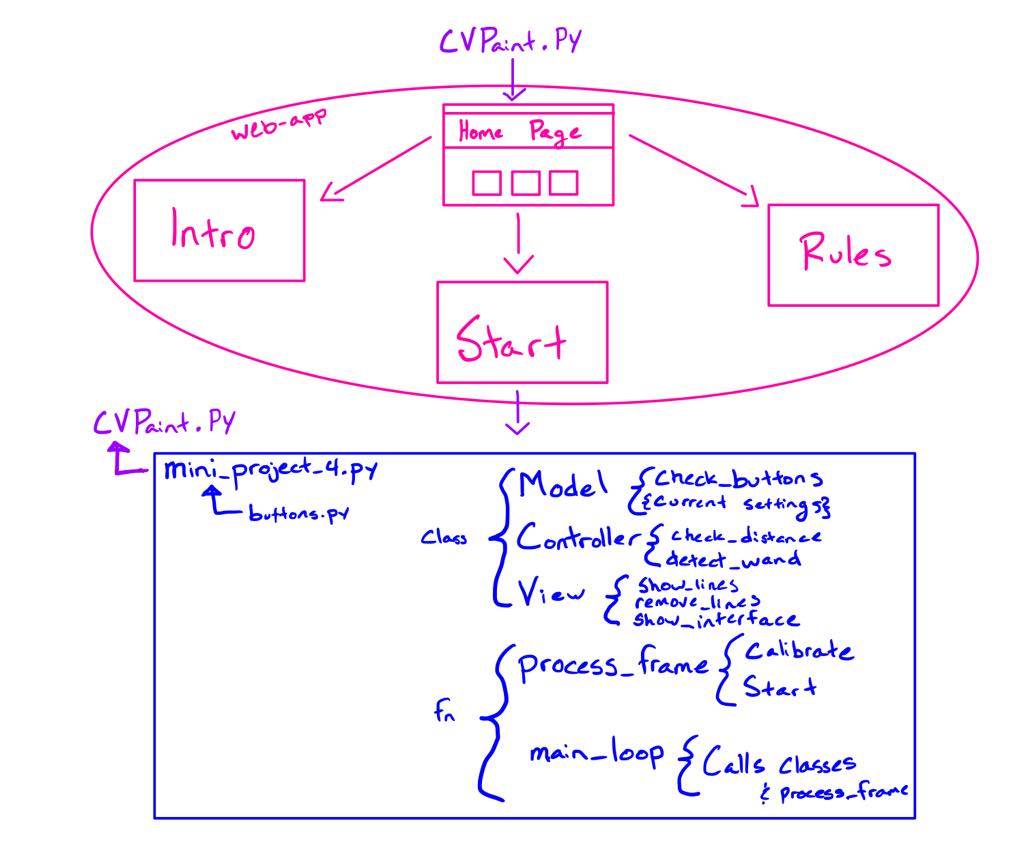 CVPaint.Py
web-app
Home Page
Intro
Rules
Start
CVPaint.Py
mini_project_4.py
buttons.py
Class
Model
Check_buttons
{Current settings}
Controller
check_distance
detect_wand
View
show_lines
remove_lines
show_interface
fn
process_frame
Calibrate
Start
main_loop
Calls classes
& process_frame